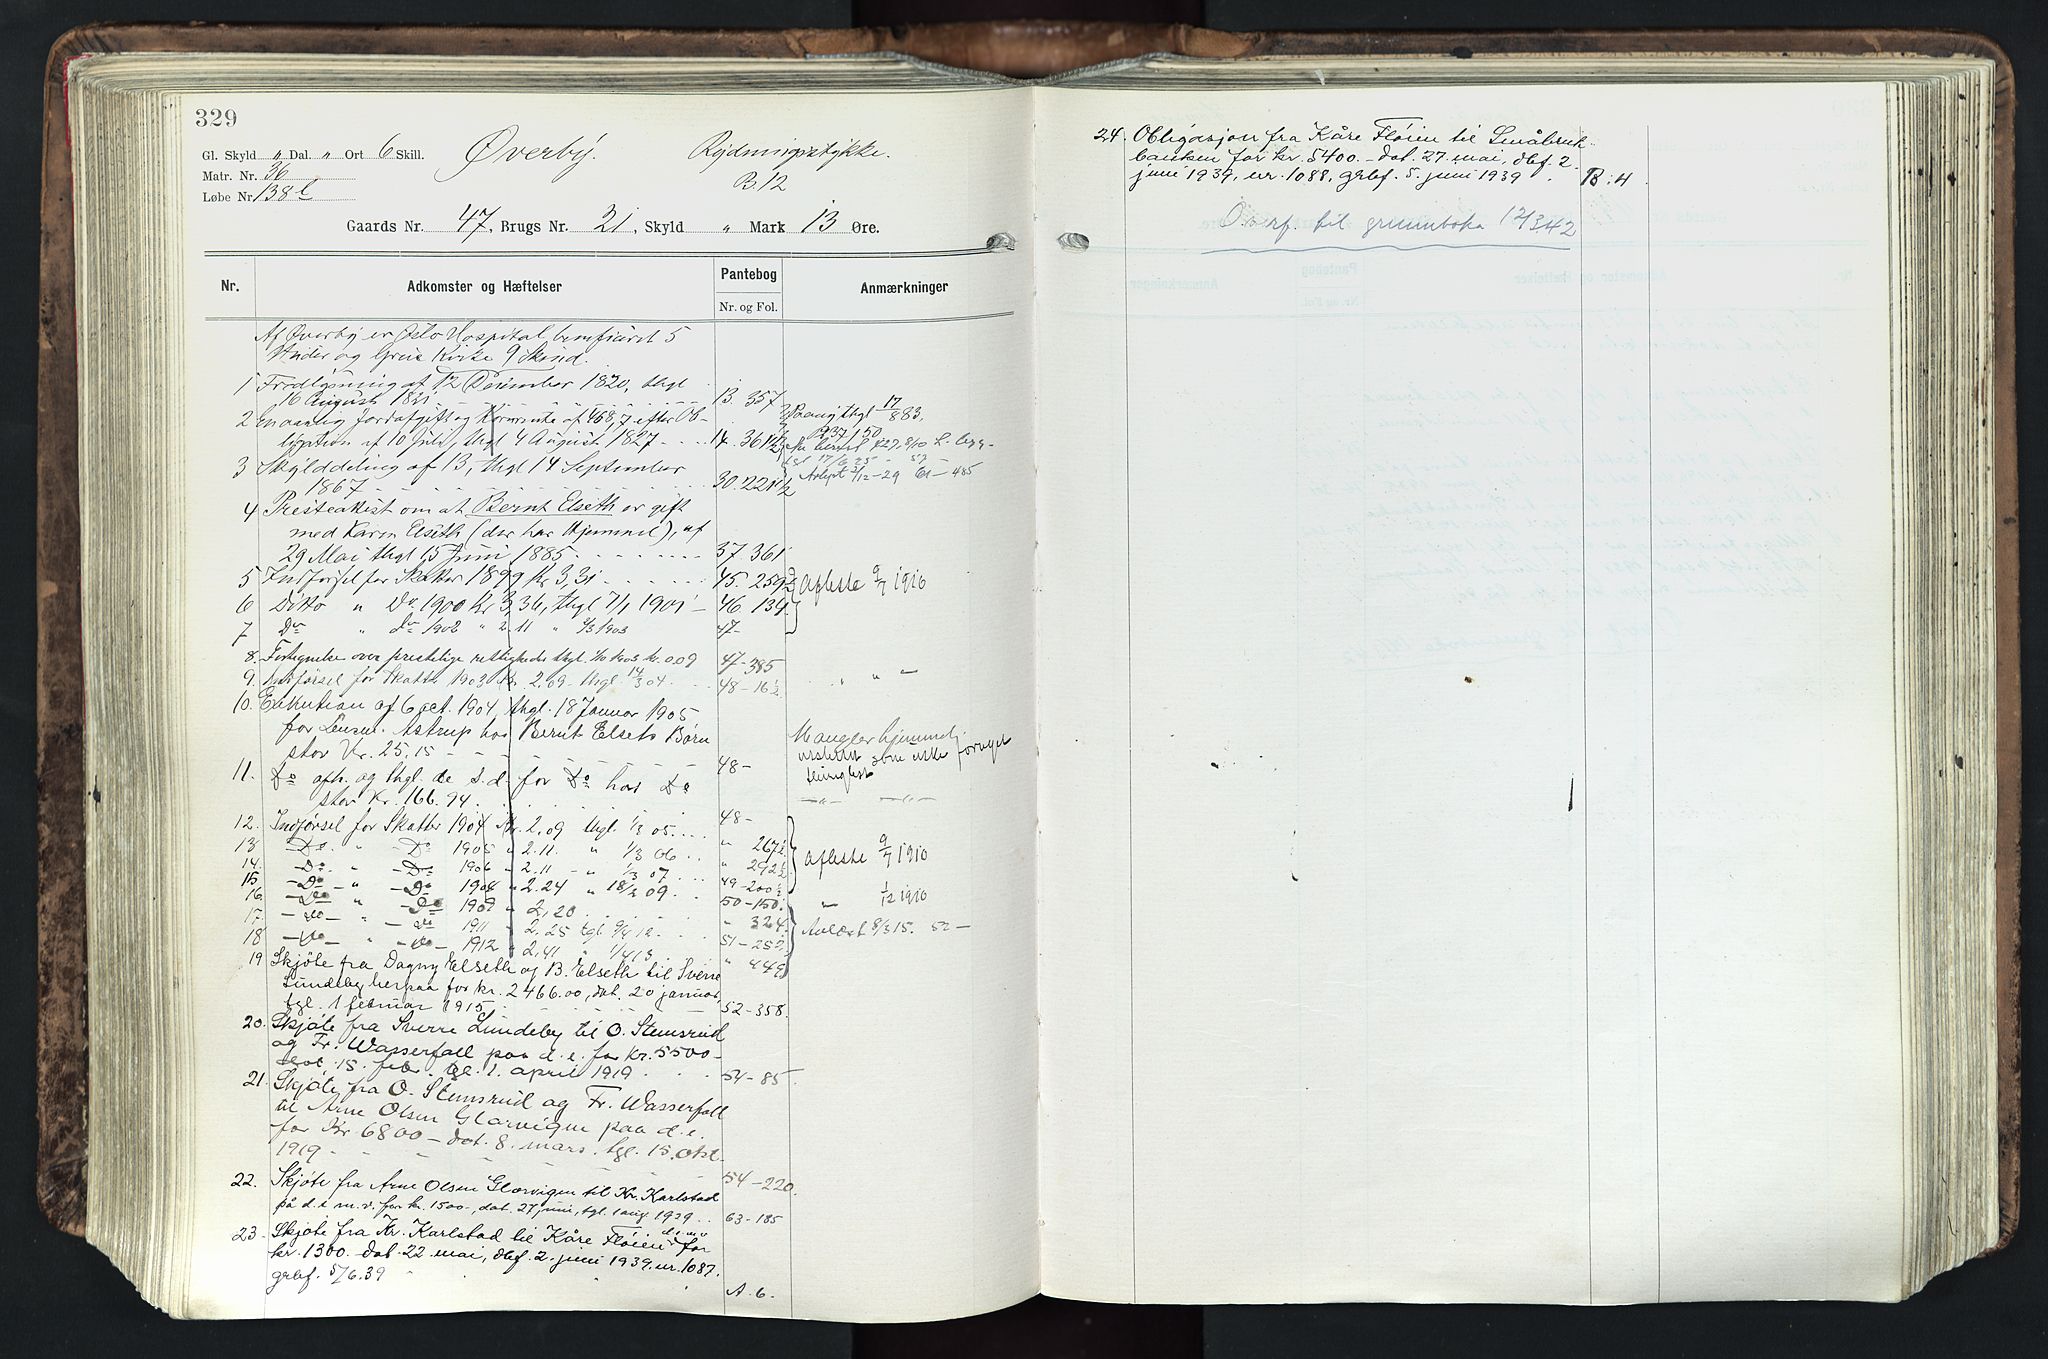 329
Gl. Skyld " Dal. " Ort 6 Skill. Øverby. Rydningsstykke.
Matr. Nr. 36 B. 12
Løbe Nr. 138 b
Gaards Nr. 47, Brugs Nr. 21, Skyld " Mark 13 Øre.
Nr. Adkomster og Hæftelser Pantebog Anmærkninger
Nr. og Fol.
Af Øverby er Oslo Hospital benficeret 5
og Kirke 9 Skind.
1 Fredlysning af 12 December 1820, thgl
16 August 1821 13. 357
2 jordafgift og Kornrente af 468,7 efter Ob-
ligation af 10 Juli, thgl 4 August 1827 - - - 14. 361½
3 Skylddeling af 13, thgl 14 September
1867 30. 221½
Avlyst 3/12-29 485
4 Presteattest om at Bernt Elseth er gift
med Karen Elseth (der har Hjemmel), af
29 Mai thgl 15 Juni 1885 37 361
5 Indførsel for Skatter 1899 Kr 3,31 45. 259½ Aflæste 9/7 1910
6 Ditto " Do 1900 Kr 3,36, thgl 7/1 1901 - 46 139
7 Do " Do 1902 " 2.11 " 2/3 1903 47-
8. Fortegnelse over prestelige rettigheder thgl. 1903 kr. 0.09 47-385
9. Indførsel for Skatter 1903 Kr. 2.09 thgl. 14/3 04. 48-16½ " -
10. Exekution af 6 oct. 1904, thgl. 18 Januar 1905
for Lensm. Astrup hos Bernt Elsets Børn
stor Kr. 25,15 48- Mangler hjemmel
11. Do afh. og thgl. de s.d. for Do hos Do
stor Kr. 166.94. 48-
12. Indførsel for Skatter 1904 Kr. 2,09 thgl. 1/3 05.
13 -Do. " -Do 1905 " 2.11. " 1/3 06 " 267½
14. -Do. " -Do 1906 " 2.11 " 1/3 07. " 292½ Aflæste 9/7 1910
15 -Do- " -Do 1908 " 2.24 " 18/2 09. 49-200½
16. -Do " -Do 1909 " 2,20 50-150. " 1/12 1910
17. -Do- " -Do 1911 " 2,25 tgl 9/4 12. " 324. Avlæst 8/3 15. 52-
18 -Do- " -Do- 1912 " 2,41 " 1/4 13 51-252
19 Skjøte fra Dagny Elseth og B. Elseth til Sverre " 449
Lundeby herpaa for kr. 2466.00, dat. 20 januar,
tgl. 1 februar 1915 52-358.
20. Skjøte fra Sverre Lundeby til O. Stemsrud
og Fr. Wasserfall paa d. e. for kr. 5500-
dat. 15. febr. tgl. 1. april 1919 54-85
21. Skjøte fra O. Stemsrud og Fr. Wasserfall
til Arne Olsen Glarvigen paa d. e.
for Kr 6800- dat. 8. mars. tgl. 15. okt.
1919 54-220.
22. Skjøte fra Arne Olsen Glarvigen til Kr. Karlstad
på d. e. m. v. for kr. 1500-, dat. 27 juni, tgl. 1 aug. 1939 63-185
23. Skjøte fra Kr. Karlstad til Kåre Fløien d. e. m v for
kr. 1300.- dat. 22. mai, dbf. 2. juni 1939. nr. 1087.
grbf. 5/6.39 A. 6.
24. Obligasjon fra Kåre Fløien til Småbruk-
banken for kr. 5400.- dat. 27. mai, dbf. 2.
juni 1939, nr. 1088, grbf. 5. juni 1939. B: 4
Overf. til grunnboka 12/3 42